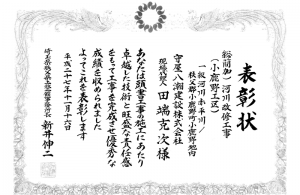 表彰状
総簡加）河川改修工事
（小鹿野工区）
一級河川赤平川／
秩父郡小鹿野町小鹿野地内
守屋八潮建設株式会社
現場代理人 田端克次様
あなたは頭書工事の施工にあたり
卓越した技術と旺盛な責任感
をもって工事を完成させ優秀な
成績を収められました
よってこれを表彰します
平成二十七年十一月十六日
埼玉県秩父県土整備事務所長 新井伸二